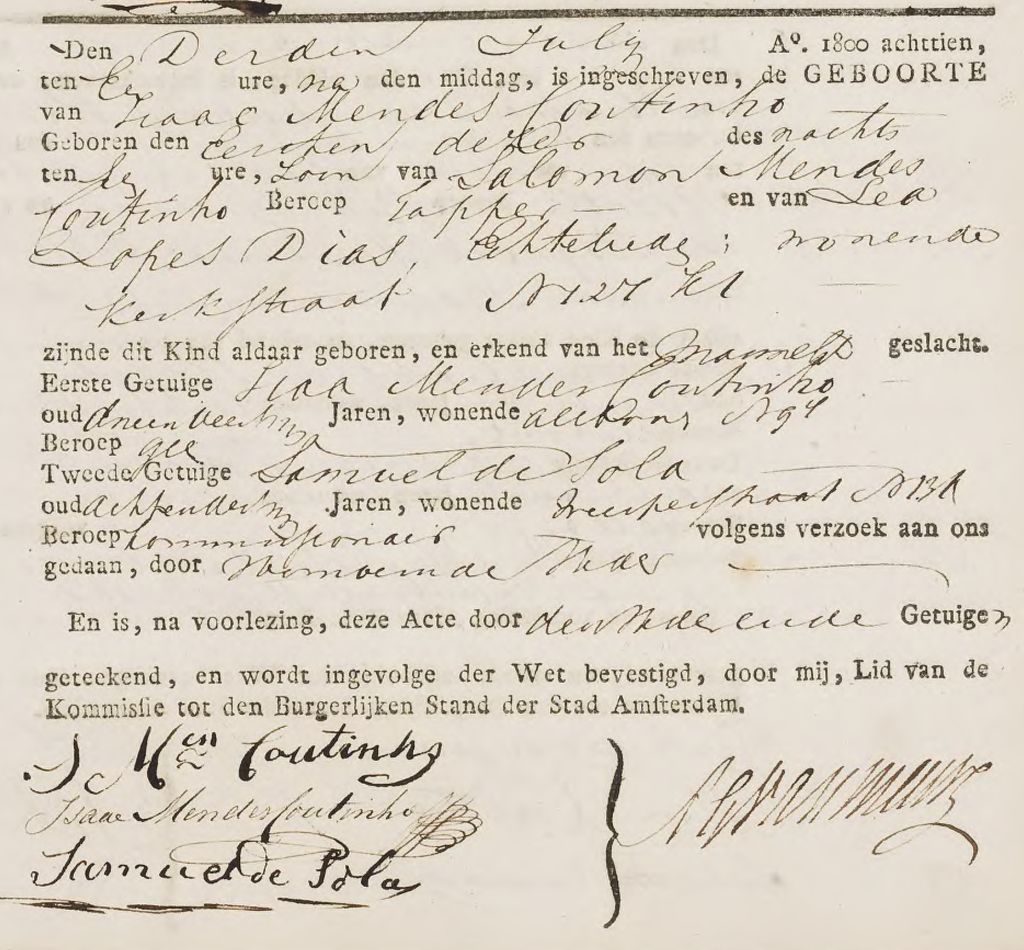 Den Derden July Aº. 1800 achttien,
ten Ee ure, na den middag, is ingeschreven, de GEBOORTE
van Isaac Mendes Coutinho
Geboren den Eersten dezer des nachts
ten Ee ure, Zoon van Salomon Mendes
Coutinho Beroep Tapper en van Lea
Lopes Dias, Echtelieden; wonende
Kerkstraat N 127 Kl
zijnde dit Kind aldaar geboren, en erkend van het Mannelk geslacht.
Eerste Getuige Isaa Mendes Coutinho
oud Jaren, wonende N 94
Beroep
Tweede Getuige Samuel de Sola
oud achtendertig Jaren, wonende Weesperstraat N
Beroep kommissionair volgens verzoek aan ons
gedaan, door Vader
En is, na voorlezing, deze Acte door den Vader ende Getuigen
geteekend, en wordt ingevolge der Wet bevestigd, door mij, Lid van de
Kommissie tot den Burgerlijken Stand der Stad Amsterdam.
S Men Coutinho
Isaac Mendes Coutinho
Samuel de Sola